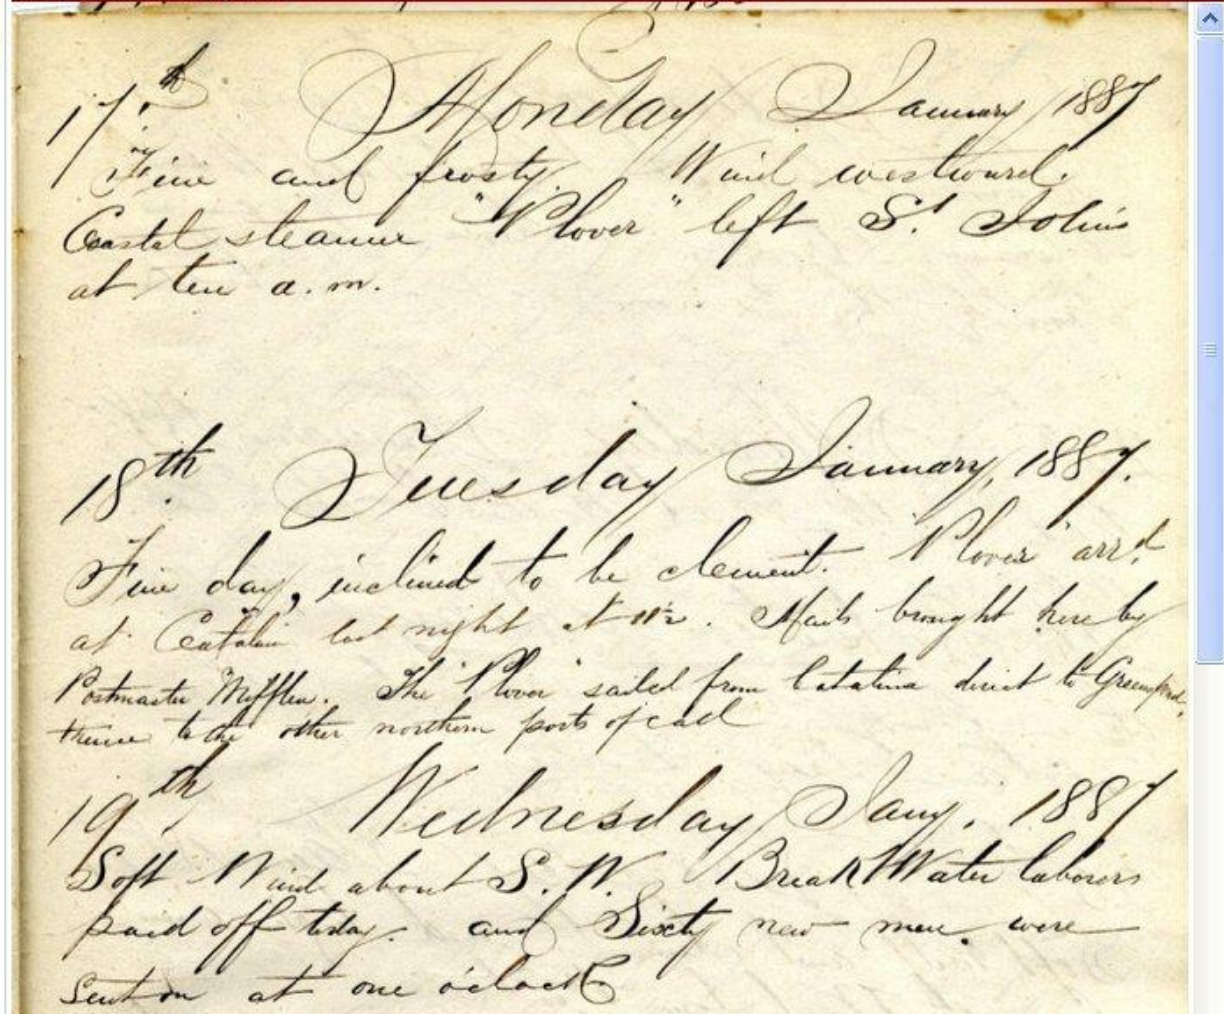 17.th Monday January 1887
Fine and frosty. Wind westward.
Coastal steamer "Plover" left St. John's
at ten a.m.
18th Tuesday January, 1887.
Fine day, inclined to be clement. "Plover" arrd.
at Catalina last night at 11½. Mails brought here by
Postmaster Mifflen. The "Plover" sailed from Catalina direct to Greenspond,
thence to the other northern ports of call
19th Wednesday Jany. 1887
Soft Wind about S. W. Break Water laborers
paid off today. and Sixty new men were
sent on at one o'clock